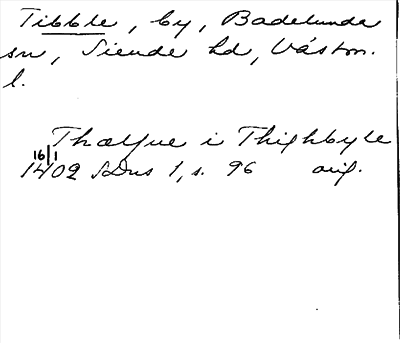 Tibble, by, Badelunda
sn, Siende hd, Västm.
l.
Thalgue i Thighbyle
16/1
1402 SDns 1, s. 96 orig.